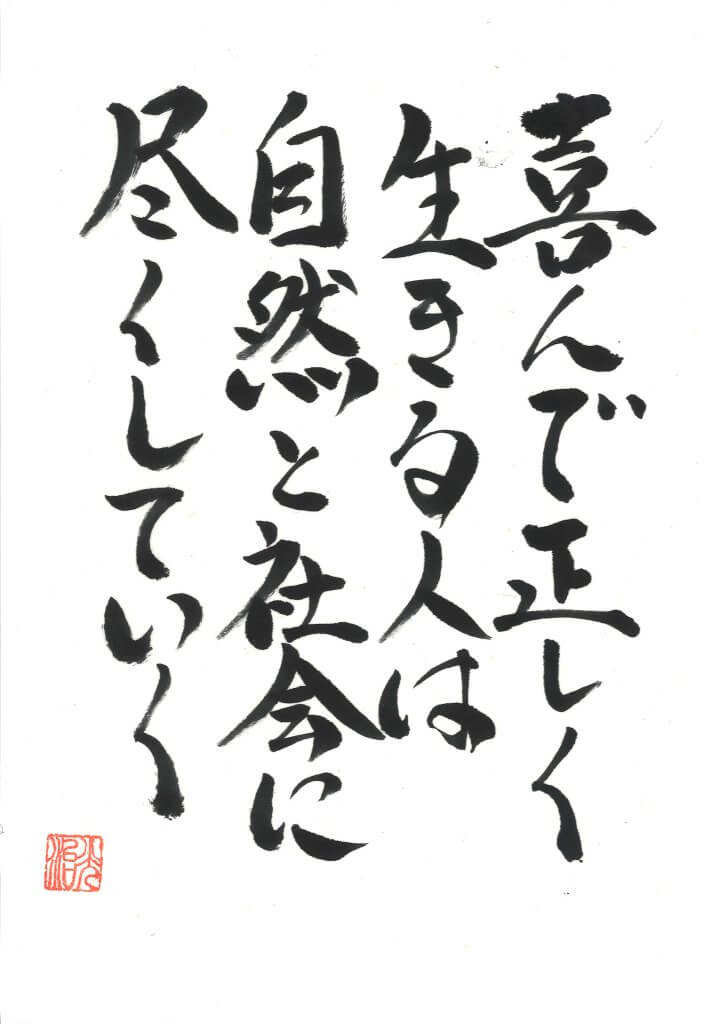 喜んで正しく
生きる人は
自然と社会に
尽くしていく